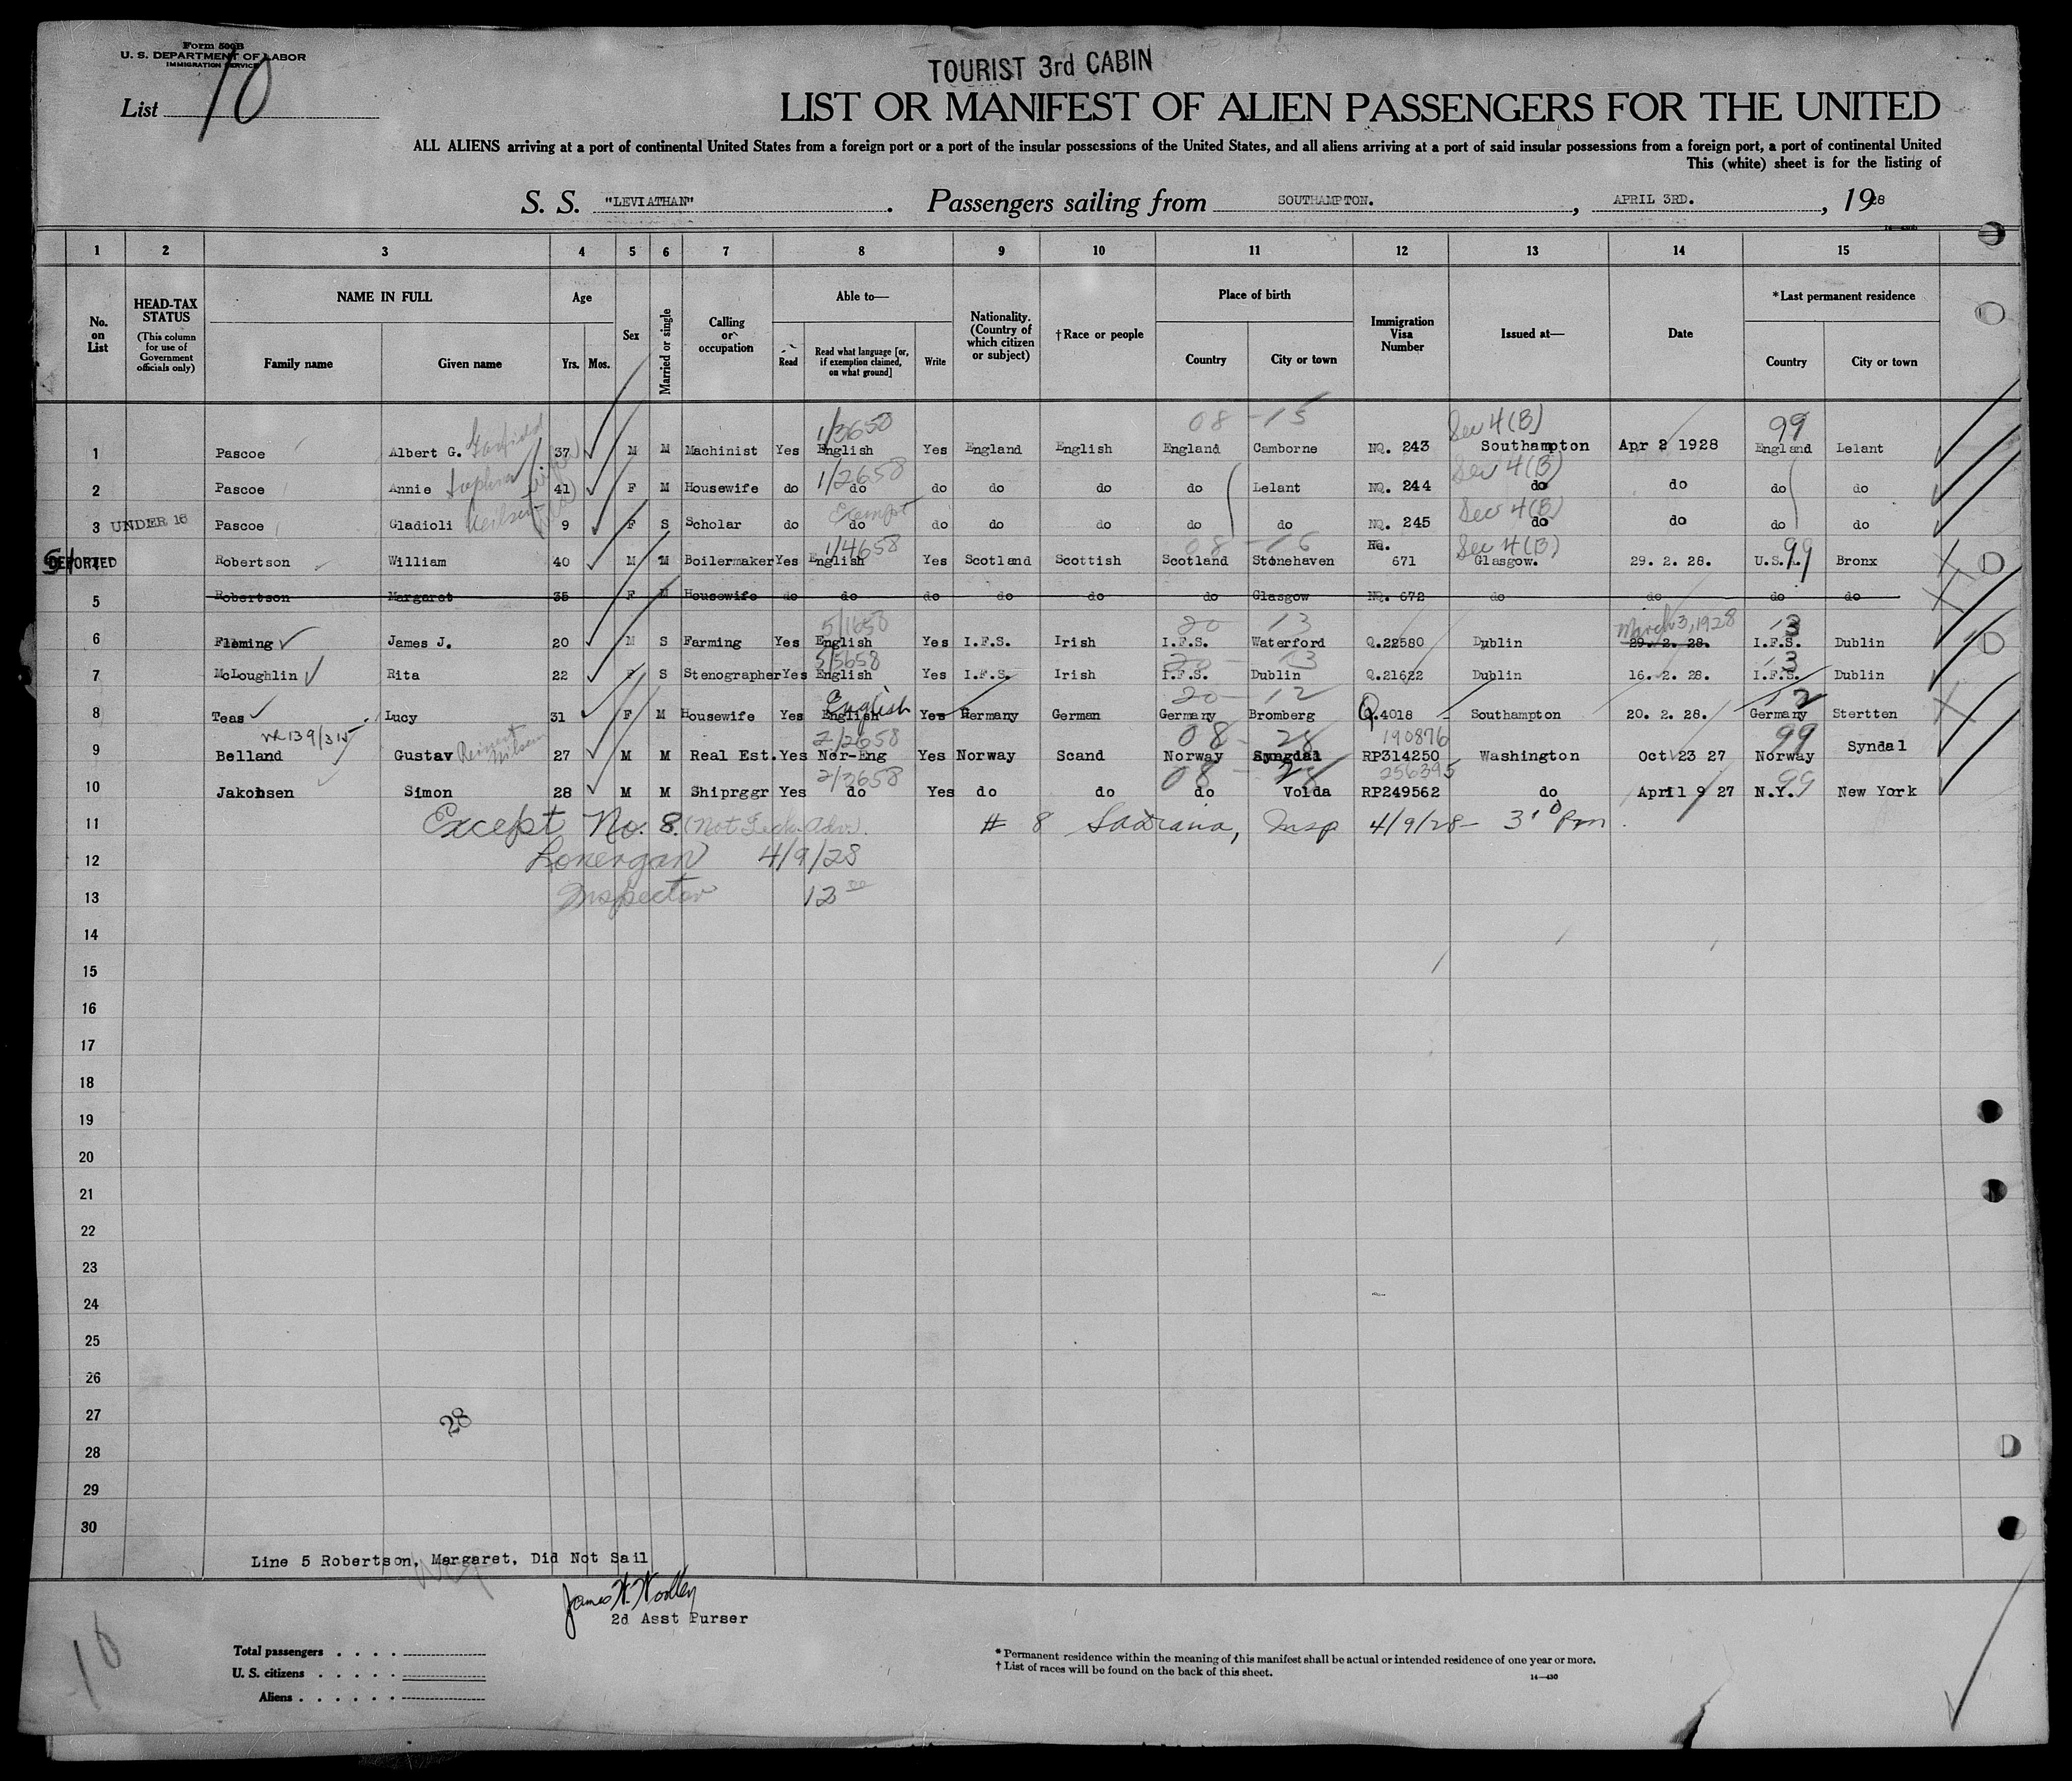 Form 500B
U. S. DEPARTMENT OF LABOR
IMMIGRATION SERVICE
List 10
TOURIST 3rd CABIN
LIST OR MANIFEST OF ALIEN PASSENGERS FOR THE UNITED
ALL ALIENS arriving at a port of continental United States from a foreign port or a port of the insular possessions of the United States, and all aliens arriving at a port of said insular possessions from a foreign port, a port of continental United
This (white) sheet is for the listing of
S. S. "LEVIATHAN" . Passengers sailing from SOUTHAMPTON. , APRIL 3RD. , 1928
1 2 3 4 5 6 7 8 9 10 11 12 13 14 15
No. on List
HEAD-TAX STATUS (This column for use of Government officials only)
NAME IN FULL Family name Given name
Age Yrs. Mos.
Sex
Married or single
Calling or occupation
Able to— Read Read what language [or, if exemption claimed, on what ground] Write
Nationality. (Country of which citizen or subject)
†Race or people
Place of birth Country City or town
Immigration Visa Number
Issued at—
Date
*Last permanent residence Country City or town
08 - 15 Sec 4(B) 99
1/3650
1 Pascoe Albert G. 37 M M Machinist Yes English Yes England English England Camborne NQ. 243 Southampton Apr 2 1928 England Lelant
1/2658 Sec 4(B)
2 Pascoe Annie 41 F M Housewife do do do do do do Lelant NQ. 244 do do do do
Exempt Sec 4(B)
3 UNDER 16 Pascoe Gladioli 9 F S Scholar do do do do do do do NQ. 245 do do do do
1/4658 08 - 16 Sec 4(B) 99
DEPORTED Robertson William 40 M M Boilermaker Yes English Yes Scotland Scottish Scotland Stonehaven NQ. 671 Glasgow. 29. 2. 28. U.S.A. Bronx
5 Robertson Margaret 35 F M Housewife do do do do do do Glasgow NQ. 672 do do do do
5/1650 20 13 March 3, 1928 13
6 Fleming James J. 20 M S Farming Yes English Yes I.F.S. Irish I.F.S. Waterford Q.22580 Dublin 29. 2. 28. I.F.S. Dublin
5/5658 20 - 13 13
7 McLoughlin Rita 22 F S Stenographer Yes English Yes I.F.S. Irish I.F.S. Dublin Q.21622 Dublin 16. 2. 28. I.F.S. Dublin
English 20 - 12 12
8 Teas Lucy 31 F M Housewife Yes English Yes Germany German Germany Bromberg Q.4018 Southampton 20. 2. 28. Germany Stertten
2/2658 08 - 28 190876 99
9 Belland Gustav 27 M M Real Est. Yes Nor-Eng Yes Norway Scand Norway Syngdal RP314250 Washington Oct 23 27 Norway Syndal
2/3658 08 - 28 256395 99
10 Jakobsen Simon 28 M M Shiprggr Yes do Yes do do do Volda RP249562 do April 9 27 N.Y. New York
11 Except No. 8. # 8 Insp 4/9/28 - 3 Pm
12 Lonergan 4/9/28
13 Inspector 12
14
15
16
17
18
19
20
21
22
23
24
25
26
27 28
28
29
30
Line 5 Robertson, Margaret, Did Not Sail
James W. Woolley
2d Asst Purser
10
Total passengers . . . .
U. S. citizens . . . . .
Aliens . . . . . .
* Permanent residence within the meaning of this manifest shall be actual or intended residence of one year or more.
† List of races will be found on the back of this sheet.
14—430